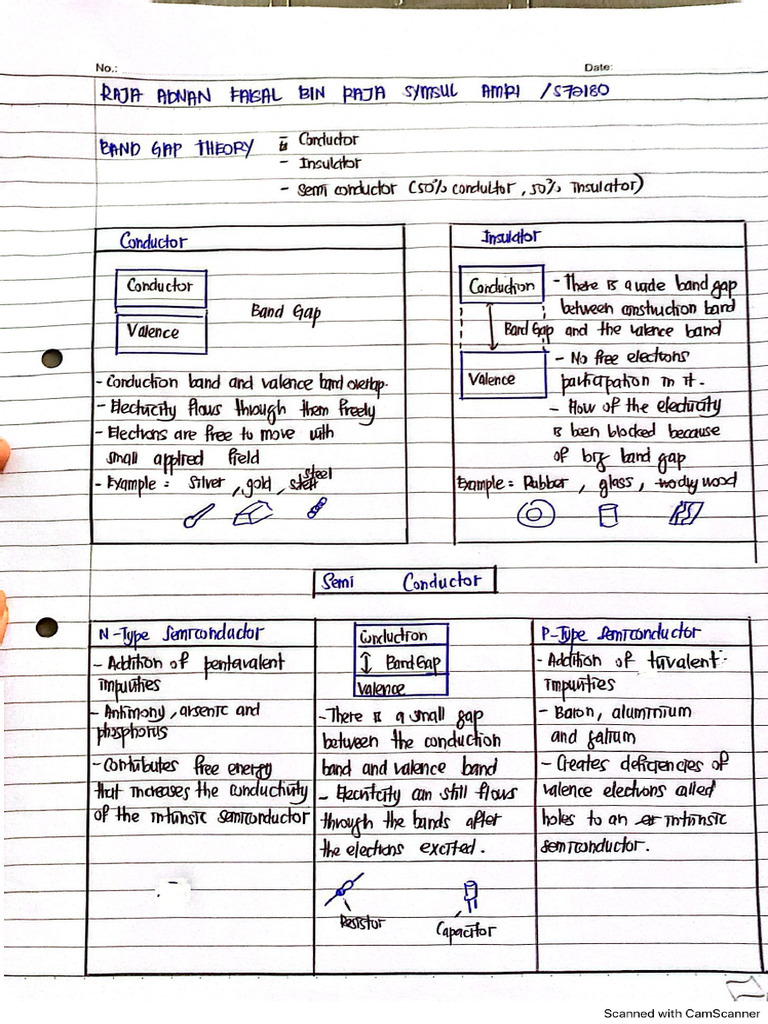 No.:
Date:
RAJA ADNAN FAISAL BIN RAJA SYMSUL AMRI / S72180
BAND GAP THEORY
- Conductor
- Insulator
- Semi conductor (50% conductor, 50% Insulator)
Conductor
Conductor
Valence
Band Gap
- Conduction band and valence band overlap.
- Electricity flows through them freely
- Electrons are free to move with
small applied field
- Example : Silver, gold, steel
Insulator
Conduction
Band Gap
Valence
- There is a wide band gap
between construction band
and the valence band
- No free electrons
participation in it.
- Flow of the electricity
is been blocked because
of big band gap
Example : Rubber, glass, wood
Semi Conductor
N-Type Semiconductor
- Addition of pentavalent
impurities
- Antimony, arsenic and
phosphorus
- Contributes free energy
that increases the conductivity
of the intrinsic semiconductor
Conduction
Band Gap
Valence
- There is a small gap
between the conduction
band and valence band
- Elecricity can still flows
through the bands after
the elections excited.
Resistor
Capacitor
P-Type Semiconductor
- Addition of trivalent
impurities
- Baron, aluminium
and galium
- Creates deficiencies of
valence electrons called
holes to an intrinsic
semiconductor.
Scanned with CamScanner